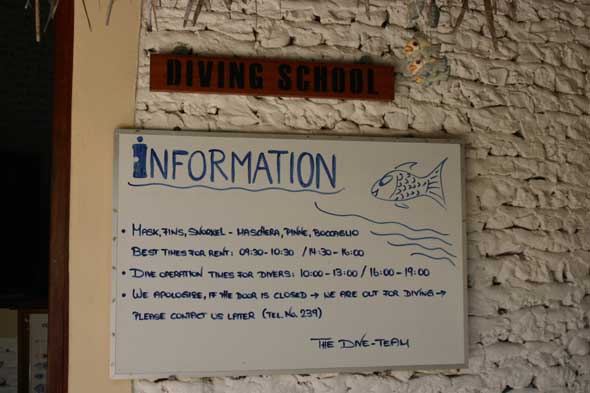 DIVING SCHOOL
INFORMATION
• MASK, FINS, SNORKEL - MASCHERA, PINNE, BOCCAGLIO
BEST TIMES FOR RENT: 09:30 - 10:30 / 14:30 - 16:00
• DIVE OPERATION TIMES FOR DIVERS: 10:00 - 13:00 / 16:00 - 19:00
• WE APOLOGISE, IF THE DOOR IS CLOSED → WE ARE OUT FOR DIVING →
PLEASE CONTACT US LATER (TEL. NO. 239)
THE DIVE-TEAM